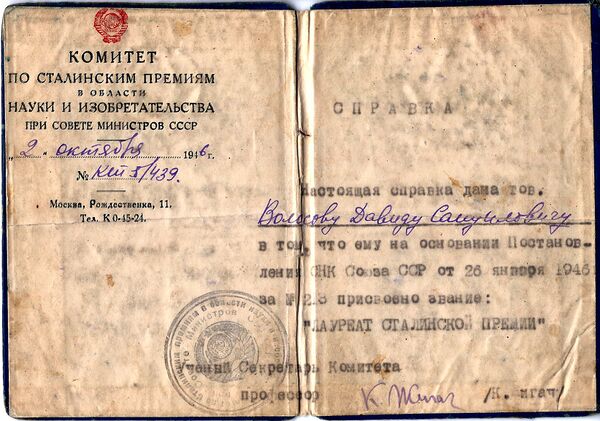 КОМИТЕТ
ПО СТАЛИНСКИМ ПРЕМИЯМ
В ОБЛАСТИ
НАУКИ И ИЗОБРЕТАТЕЛЬСТВА
ПРИ СОВЕТЕ МИНИСТРОВ СССР
„2" октября 1946 г.
№ Кст5/439.
Москва, Рождественка, 11.
Тел. К 0-45-24.
СПРАВКА
Настоящая справка дана тов.
Волосову Давиду Самуиловичу
в том, что ему на основании Постанов-
ления СНК Союза ССР от 26 января 1946
за № присвоено звание:
"ЛАУРЕАТ СТАЛИНСКОЙ ПРЕМИИ"
Ученый Секретарь Комитета
профессор